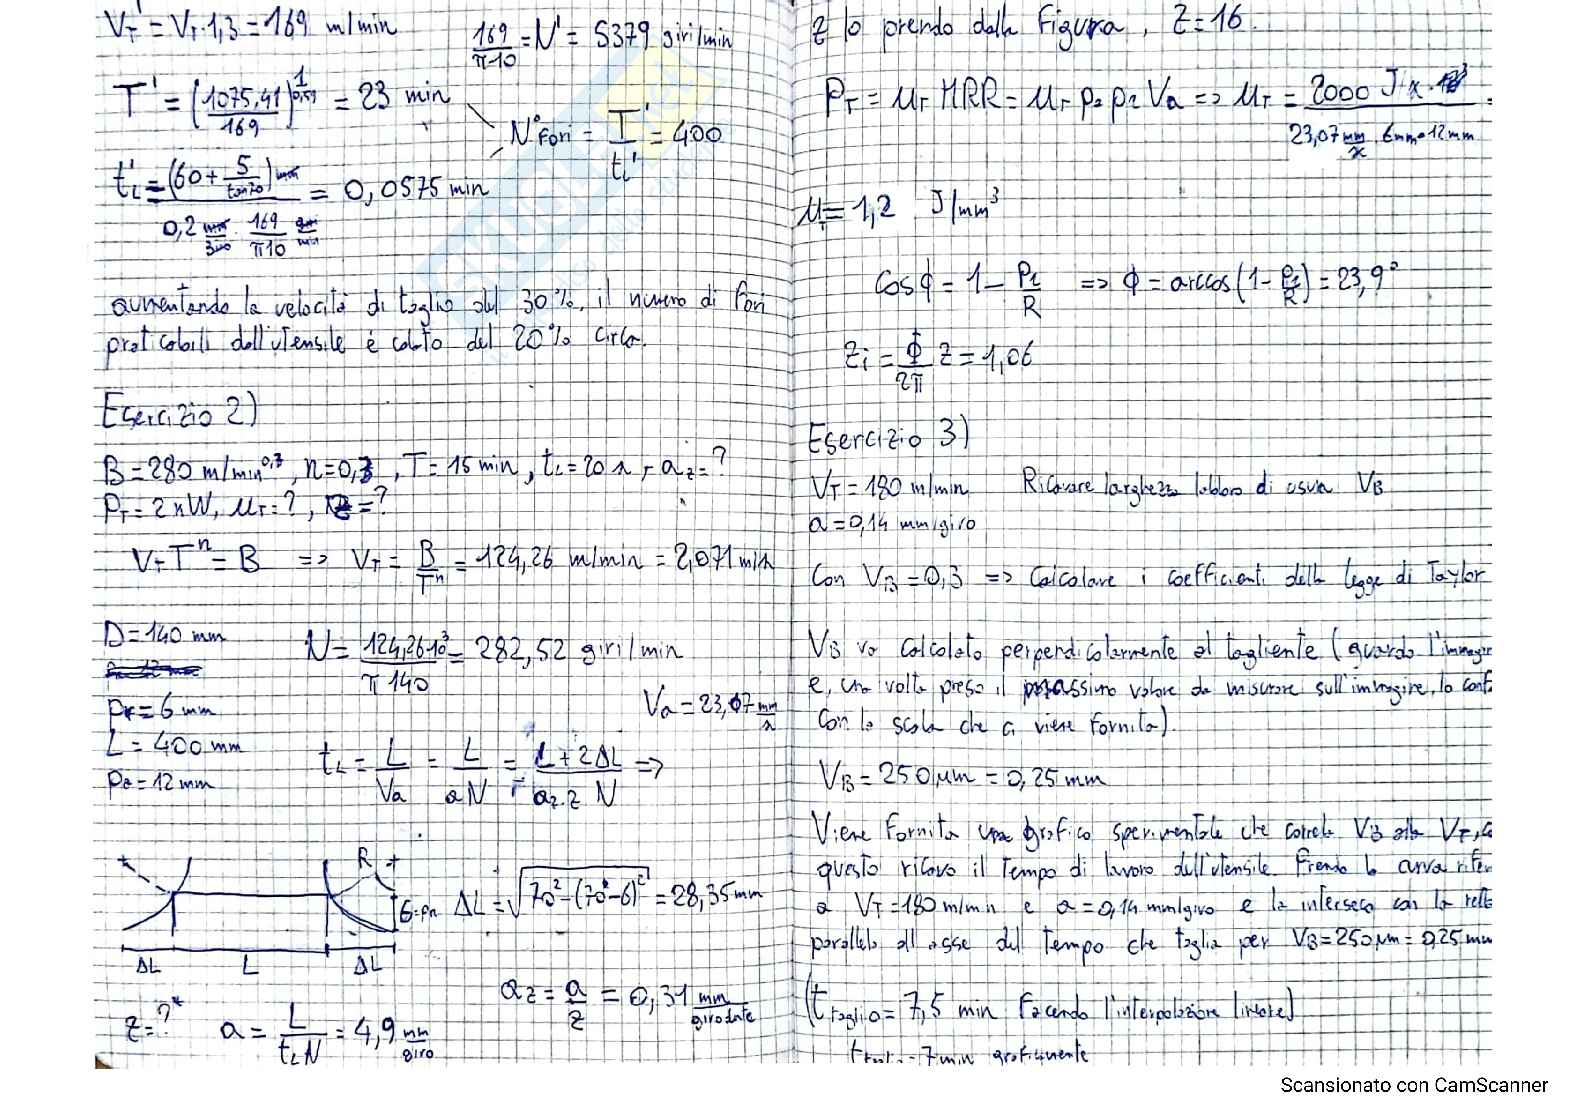 V_T' = V_T · 1,3 = 169 m/min
169 / π·10 = N' = 5379 giri/min
T' = (1075,41 / 169)^(1/0,59) = 23 min
N° Fori = T' / t_L' = 400
t_L' = (60 + 5/tan70) mm / 0,2 mm/giro · 169/π10 m/min = 0,0575 min
aumentando la velocità di taglio del 30%, il numero di fori
praticabili dall'utensile è calato del 20% circa.
Esercizio 2)
B = 280 m/min^0,3, n = 0,3, T = 15 min, t_L = 20 s, a_z = ?
P_T = 2 kW, μ_T = ?, = ?
V_T T^n = B => V_T = B / T^n = 124,26 m/min = 2,071 m/s
D = 140 mm
N = 124,26·10³ / π 140 = 282,52 giri/min
p_r = 6 mm
V_a = 23,07 mm/s
L = 400 mm
t_L = L / V_a = L / aN = L + 2ΔL / a_z·z N =>
p_a = 12 mm
R
6 = p_r
ΔL = √(70² - (70 - 6)²) = 28,35 mm
ΔL L ΔL
a_z = a / z = 0,31 mm / giro dente
z = ?* a = L / t_L N = 4,9 mm / giro
z lo prendo dalla figura, Z = 16.
P_T = μ_T MRR = μ_T p_a p_r V_a => μ_T = 2000 J/s / 23,07 mm/s · 6mm · 12mm
μ_T = 1,2 J/mm³
cosϕ = 1 - p_r / R => ϕ = arccos(1 - p_r / R) = 23,9°
z_i = ϕ / 2π z = 1,06
Esercizio 3)
V_T = 180 m/min Ricavare larghezza labbro di usura V_B
a = 0,14 mm/giro
Con V_B = 0,3 => Calcolare i coefficienti della legge di Taylor
V_B va calcolato perpendicolarmente al tagliente (guardo l'immagin
e, una volta preso il massimo valore da misurare sull'immagine, lo conf
con la scala che ci viene fornita).
V_B = 250 μm = 0,25 mm
Viene fornito una grafico sperimentale che correla V_B alla V_T, c
questo ricavo il tempo di lavoro dell'utensile. Prendo la curva rifer
a V_T = 180 m/min e a = 0,14 mm/giro e la interseco con la retta
parallela all'asse del tempo che taglia per V_B = 250 μm = 0,25 mm
(t_taglio = 7,5 min facendo l'interpolazione lineare)
= 7 min graficamente
Scansionato con CamScanner